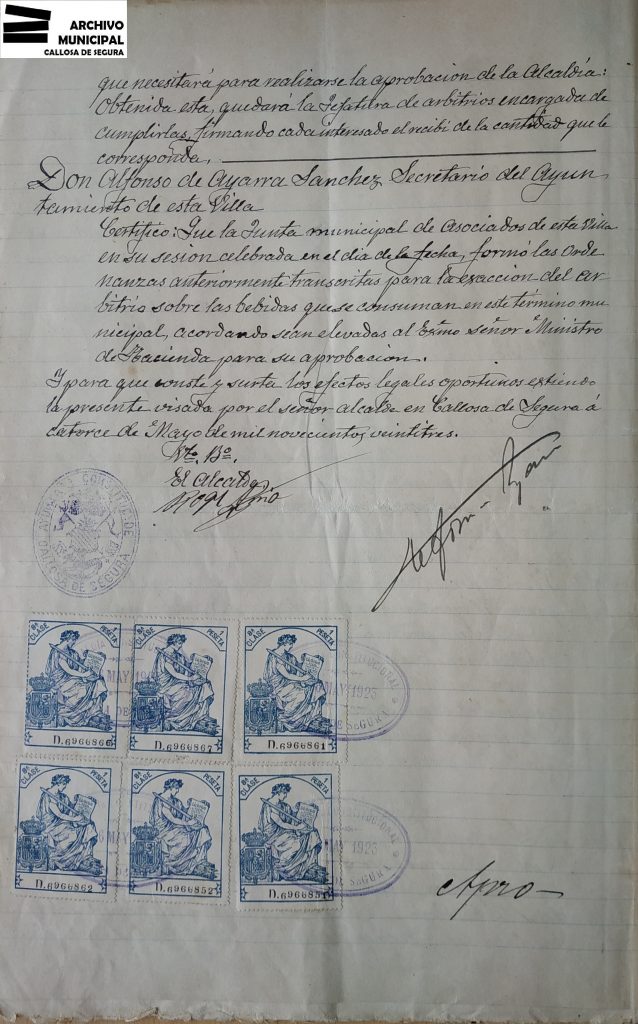 ARCHIVO
MUNICIPAL
CALLOSA DE SEGURA
que necesitará para realizarse la aprobacion de la Alcaldía:
Obtenida esta, quedará la Jefatura de arbitrios encargada de
cumplirlas, firmando cada interesado el recibi de la cantidad que le
corresponda.
Don Alfonso de Ayarra Sanchez Secretario del Ayun-
tamiento de esta Villa
Certifico: Que la Junta municipal de asociados de esta Villa
en su sesion celebrada en el dia de la fecha, formó las Orde
nanzas anteriormente transcritas para la exaccion del ar-
bitrio sobre las bebidas que se consuman en este término mu-
nicipal, acordando sean elevadas al Exmo señor Ministro
de Hacienda para su aprobacion.
Y para que conste y surta los efectos legales oportunos extiendo
la presente visada por el señor alcalde en Callosa de Segura á
catorce de Mayo de mil novecientos veintitres.
Vto. Bo.
El Alcalde
CALLOSA DE SEGURA
8ª CLASE 1 PESETA
8ª CLASE 1 PESETA
8ª CLASE 1 PESETA
MAY 1923
D.6966866
D.6966867
D.6966861
DE SEGURA
8ª CLASE 1 PESETA
8ª CLASE 1 PESETA
8ª CLASE 1 PESETA
MAY 1923
D.6966862
D.6966852
D.6966851
DE SEGURA
Apro-